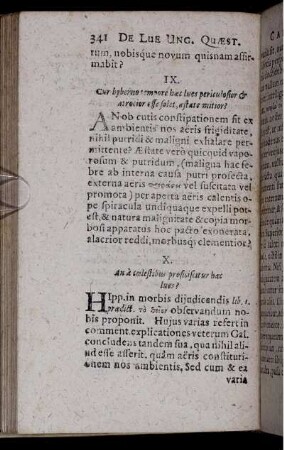 341 DE LUE UNG. QUÆST.
rum, nobisque novum quisnam affir-
mabit?
IX.
Cur hyberno tempore hæc lues periculosior &
atrocior esse solet, æstate mitior?
AN ob cutis constipationem fit ex
ambientis nos aëris frigiditate,
nihil putridi & maligni exhalare per-
mittente? Æstate verò quicquid vapo-
rosum & putridum, (maligna hac fe-
bre ab interna causa putri profecta,
externa aëris vel suscitata vel
promota) per aperta aëris calentis o-
pe spiracula undiquaque expelli pot-
est, & natura malignitate & copia mor-
bosi apparatus hoc pacto exonerata,
alacrior reddi, morbusq; clementior?
X.
An à cœlestibus proficiscatur hæc
lues?
HIpp. in morbis dijudicandis lib. 1.
prædict. τὸ θεῖον observandum no-
bis proponit. Hujus varias refert in
comment. explicationes veterum Gal.
concludens tandem sua, qua nihil ali-
ud esse asserit, quàm aëris constituti-
onem nos ambientis, Sed cum & ea
varia